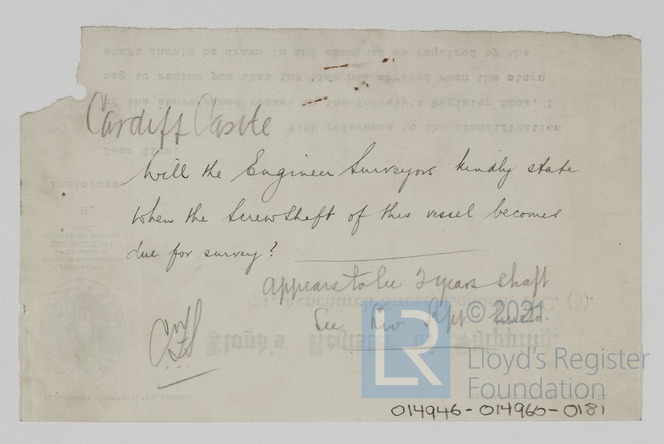 Cardiff Castle
Will the Engineer Surveyors kindly state
when the Screwshaft of this vessel becomes
due for survey?
appears to be 2 years shaft
See Rpt
© 2021
LR
Lloyd's Register
Foundation
014946-014960-0181